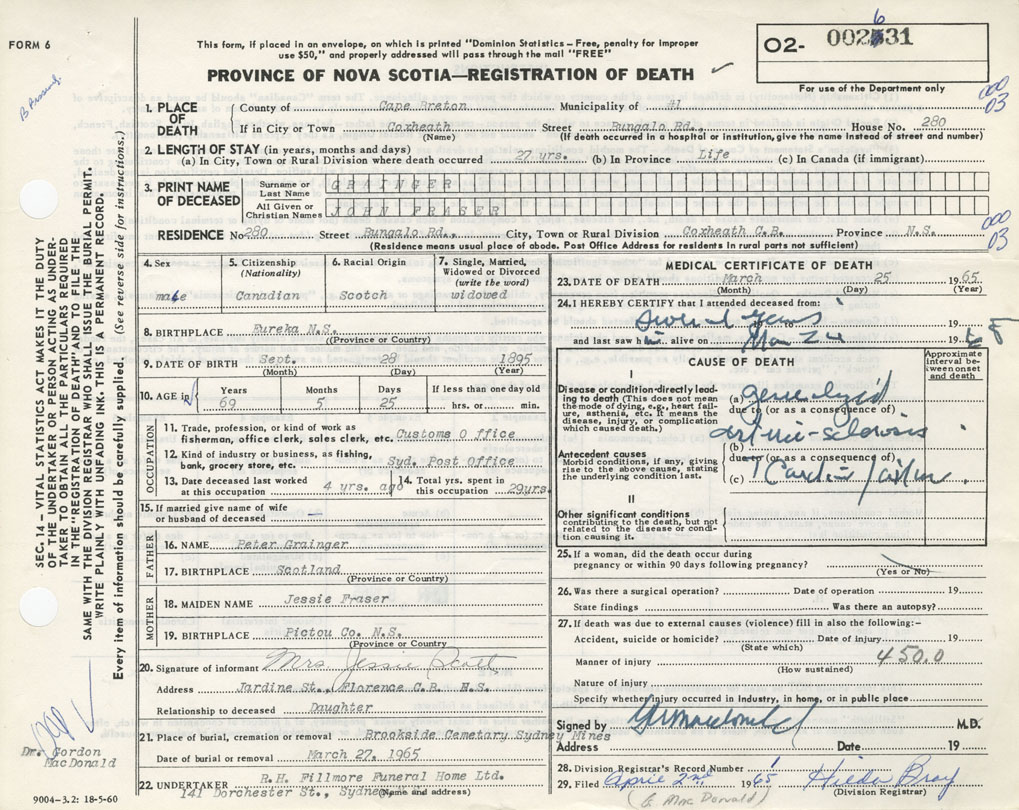 FORM 6
This form, if placed in an envelope, on which is printed "Dominion Statistics – Free, penalty for improper
use $50," and properly addressed will pass through the mail "FREE"
PROVINCE OF NOVA SCOTIA—REGISTRATION OF DEATH
02- 002631
6
For use of the Department only
000
03
1. PLACE OF DEATH
County of Cape Breton Municipality of #1
If in City or Town Coxheath Street Bungalo Rd., House No. 280
(Name) (If death occurred in a hospital or institution, give the name instead of street and number)
2. LENGTH OF STAY (in years, months and days)
(a) In City, Town or Rural Division where death occurred 27 yrs. (b) In Province Life (c) In Canada (if immigrant)
3. PRINT NAME OF DECEASED
Surname or Last Name GRAINGER
All Given or Christian Names JOHN FRASER
000
03
RESIDENCE No 280 Street Bungalo Rd., City, Town or Rural Division Coxheath C.B. Province N.S.
(Residence means usual place of abode. Post Office Address for residents in rural parts not sufficient)
4. Sex
male
5. Citizenship (Nationality)
Canadian
6. Racial Origin
Scotch
7. Single, Married, Widowed or Divorced (write the word)
widowed
8. BIRTHPLACE Eureka N.S.
(Province or Country)
9. DATE OF BIRTH Sept. 28 1895
(Month) (Day) (Year)
10. AGE in
Years Months Days If less than one day old
69 5 25 hrs. or min.
OCCUPATION
11. Trade, profession, or kind of work as
fisherman, office clerk, sales clerk, etc. Customs O ffice
12. Kind of industry or business, as fishing,
bank, grocery store, etc. Syd. Post Office
13. Date deceased last worked at this occupation 4 yrs. ago
14. Total yrs. spent in this occupation 29yrs.
15. If married give name of wife
or husband of deceased —
FATHER
16. NAME Peter Grainger
17. BIRTHPLACE Scotland
(Province or Country)
MOTHER
18. MAIDEN NAME Jessie Fraser
19. BIRTHPLACE Pictou Co. N.S.
(Province or Country)
20. Signature of informant Mrs Jessie Scott
Address Jardine St., Florence C.B. N.S.
Relationship to deceased Daughter
21. Place of burial, cremation or removal Brookside Cemetary Sydney Mines
Date of burial or removal March 27, 1965
22. UNDERTAKER R.H. Fillmore Funeral Home Ltd.
141 Dorchester St., Sydney
(Name and address)
MEDICAL CERTIFICATE OF DEATH
23. DATE OF DEATH March 25 1965
(Month) (Day) (Year)
24. I HEREBY CERTIFY that I attended deceased from:
Several years 19 to 19
and last saw him alive on Mar 24 19 65
CAUSE OF DEATH
Approximate interval between onset and death
I
Disease or condition directly leading to death (This does not mean the mode of dying, e.g., heart failure, asthenia, etc. It means the disease, injury, or complication which caused death.)
(a) generalyzed
due to (or as a consequence of)
arterio-sclerosis
(b)
Antecedent causes
Morbid conditions, if any, giving rise to the above cause, stating the underlying condition last.
due to (or as a consequence of)
(c) Cardiac failure
II
Other significant conditions
contributing to the death, but not related to the disease or condition causing it.
25. If a woman, did the death occur during
pregnancy or within 90 days following pregnancy?
(Yes or No)
26. Was there a surgical operation? Date of operation 19
State findings Was there an autopsy?
27. If death was due to external causes (violence) fill in also the following:-
Accident, suicide or homicide? Date of injury 19
(State which)
Manner of injury 450.0
(How sustained)
Nature of injury
Specify whether injury occurred in Industry, in home, or in public place
Signed by M.D.
Address Date 19
28. Division Registrar's Record Number 1
29. Filed April 2nd 1965 Hilda Bray
(Division Registrar)
(G MacDonald)
SEC. 14 – VITAL STATISTICS ACT MAKES IT THE DUTY
OF THE UNDERTAKER OR PERSON ACTING AS UNDER-
TAKER TO OBTAIN ALL THE PARTICULARS REQUIRED
IN THE "REGISTRATION OF DEATH" AND TO FILE THE
SAME WITH THE DIVISION REGISTRAR WHO SHALL ISSUE THE BURIAL PERMIT.
WRITE PLAINLY WITH UNFADING INK. THIS IS A PERMANENT RECORD.
Every item of information should be carefully supplied. (See reverse side for instructions.)
Dr. Gordon
MacDonald
9004-3.2: 18-5-60